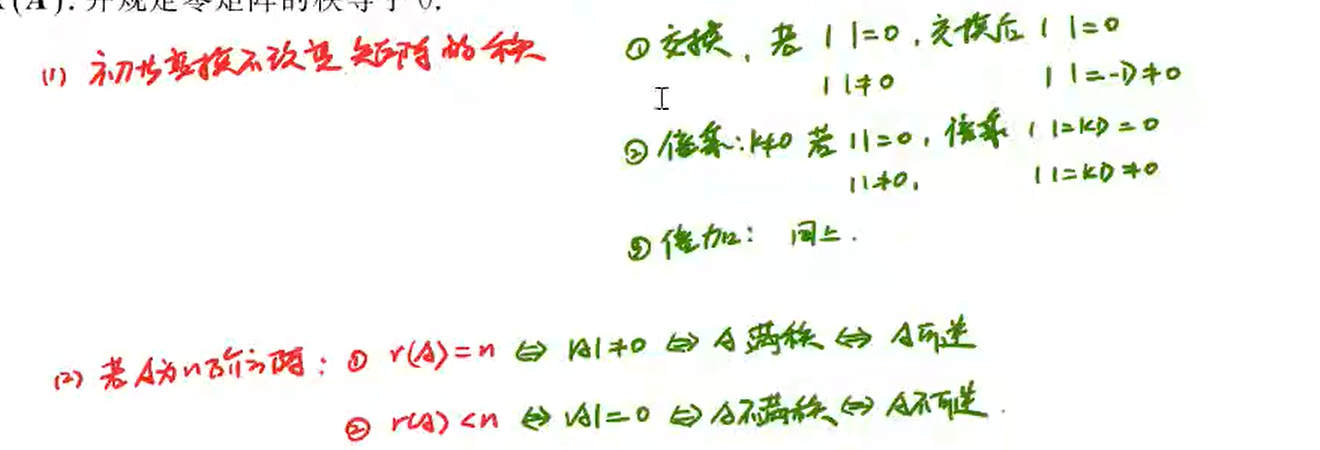 (A). 并规定零矩阵的秩等于 0.
(1) 初等变换不改变矩阵的秩
① 交换, 若 | |=0, 交换后 | |=0
| |≠0 | |=-D≠0
② 倍乘: k≠0 若 | |=0, 倍乘 | |=kD=0
| |≠0, | |=kD≠0
③ 倍加: 同上.
(2) 若A为n阶方阵: ① r(A)=n ⇔ |A|≠0 ⇔ A满秩 ⇔ A可逆
② r(A)<n ⇔ |A|=0 ⇔ A不满秩 ⇔ A不可逆.